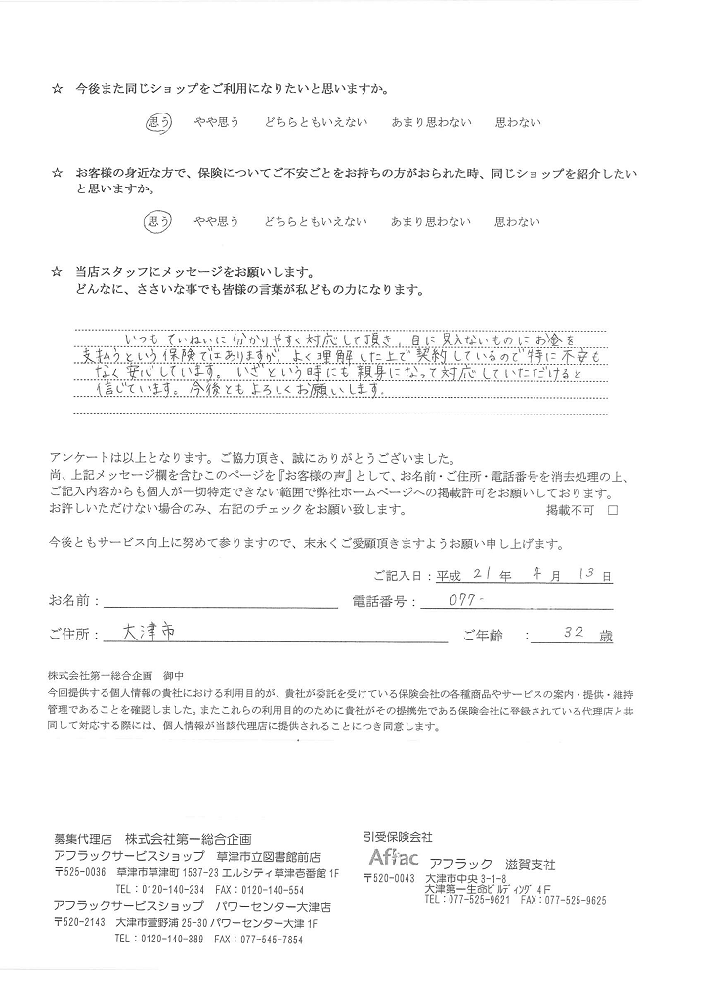 ☆ 今後また同じショップをご利用になりたいと思いますか。
思う やや思う どちらともいえない あまり思わない 思わない
☆ お客様の身近な方で、保険についてご不安ごとをお持ちの方がおられた時、同じショップを紹介したい
と思いますか。
思う やや思う どちらともいえない あまり思わない 思わない
☆ 当店スタッフにメッセージをお願いします。
どんなに、ささいな事でも皆様の言葉が私どもの力になります。
いつもていねいに分かりやすく対応して頂き、目に見えないものにお金を
支払うという保険ではありますが、よく理解した上で契約しているので特に不安も
なく安心しています。いざという時にも親身になって対応していただけると
信じています。今後ともよろしくお願いします。
アンケートは以上となります。ご協力頂き、誠にありがとうございました。
尚、上記メッセージ欄を含むこのページを『お客様の声』として、お名前・ご住所・電話番号を消去処理の上、
ご記入内容からも個人が一切特定できない範囲で弊社ホームページへの掲載許可をお願いしております。
お許しいただけない場合のみ、右記のチェックをお願い致します。 掲載不可 □
今後ともサービス向上に努めて参りますので、末永くご愛顧頂きますようお願い申し上げます。
ご記入日：平成 21 年 月 13 日
お名前： 電話番号： 077-
ご住所： 大津市 ご年齢 ： 32 歳
株式会社第一総合企画 御中
今回提供する個人情報の貴社における利用目的が、貴社が委託を受けている保険会社の各種商品やサービスの案内・提供・維持
管理であることを確認しました。またこれらの利用目的のために貴社がその提携先である保険会社に登録されている代理店と共
同して対応する際には、個人情報が当該代理店に提供されることにつき同意します。
募集代理店 株式会社第一総合企画
アフラックサービスショップ 草津市立図書館前店
〒525-0036 草津市草津町1537-23 エルシティ草津壱番館1F
TEL：0120-140-234 FAX：0120-140-554
アフラックサービスショップ パワーセンター大津店
〒520-2143 大津市萱野浦25-30 パワーセンター大津1F
TEL：0120-140-389 FAX：077-545-7854
引受保険会社
Aflac アフラック 滋賀支社
〒520-0043 大津市中央3-1-8
大津第一生命ビルディング4F
TEL：077-525-9621 FAX：077-525-9625